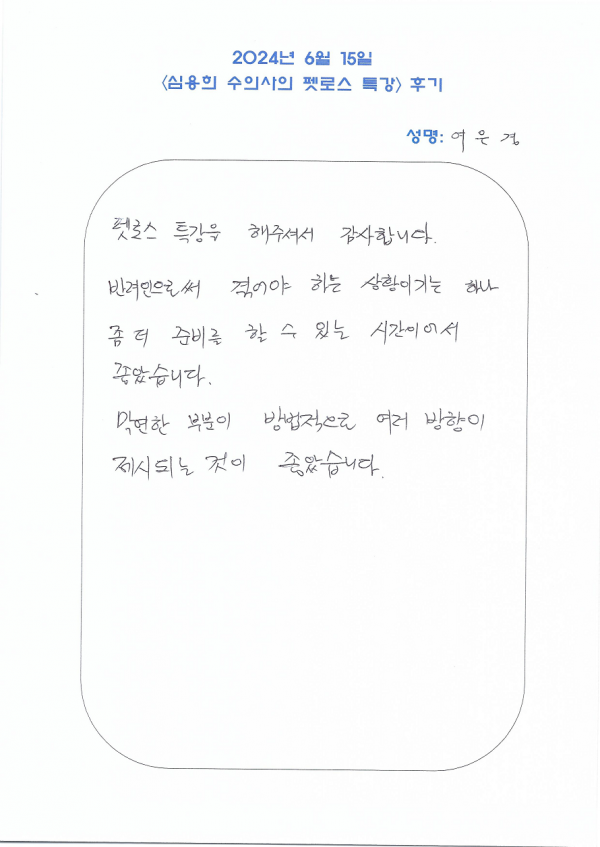 2024년 6월 15일
<심용희 수의사의 펫로스 특강> 후기
성명: 여은경
펫로스 특강을 해주셔서 감사합니다.
반려인으로써 겪어야 하는 상황이기는 하나
좀 더 준비를 할 수 있는 시간이어서
좋았습니다.
막연한 부분이 방법적으로 여러 방향이
제시되는 것이 좋았습니다.